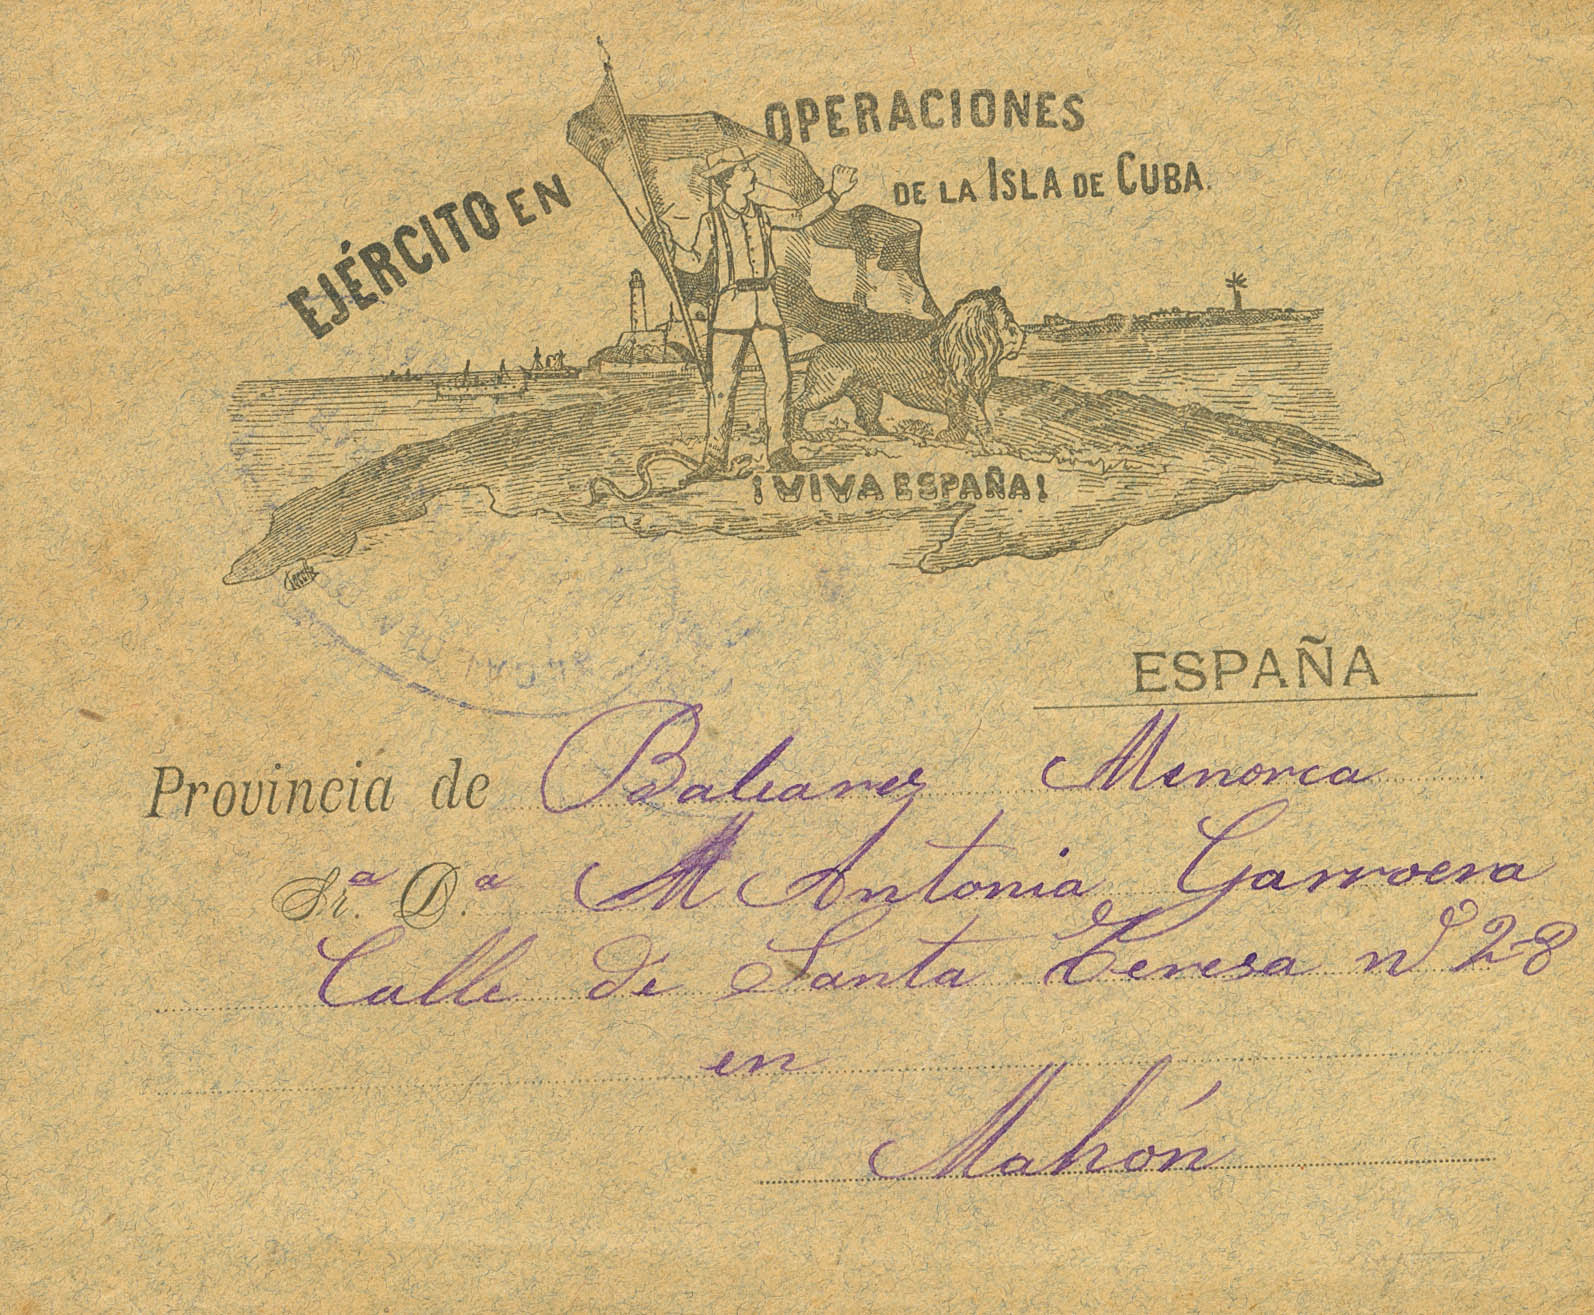 EJÉRCITO EN OPERACIONES
DE LA ISLA DE CUBA.
¡VIVA ESPAÑA!
ESPAÑA
Provincia de Baleares Menorca
Sr.ª D.ª M Antonia Garroera
Calle de Santa Teresa nº 28
en
Mahón